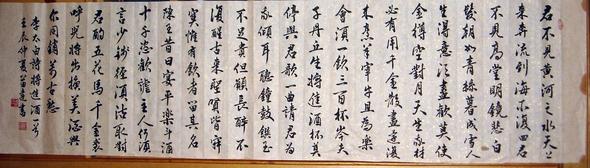 君不見黃河之水天上
来奔流到海不復回君
不見高堂明鏡悲白
髮朝如青絲暮成雪人
生得意須盡歡莫使
金樽空對月天生我材
必有用千金散盡還復
来烹羊宰牛且為樂
會須一飲三百杯岑夫
子丹丘生將進酒杯莫
停與君歌一曲請君為
我傾耳聽鐘鼓饌玉
不足貴但願長醉不
復醒古来聖賢皆寂
寞惟有飲者留其名
陳王昔日宴平樂斗酒
十千恣歡謔主人何須
言少錢徑須沽取對
君酌五花馬千金裘
呼兒將出換美酒與
尔同銷萬古愁
李太白詩將進酒一首
壬辰仲夏書